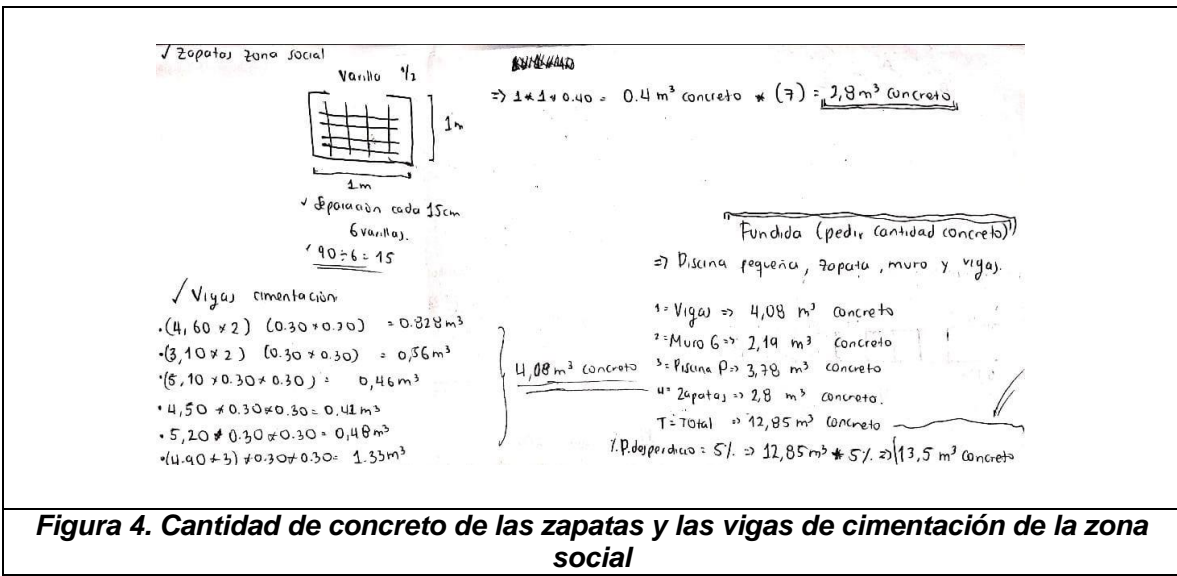 √ Zapatas zona social
Varilla 1/2
1m
1m
√ Separación cada 15cm
6 varillas.
√ 90÷6 = 15
=> 1*1*0.40 = 0.4 m³ concreto * (7) = 2,8 m³ concreto
√ Vigas cimentación
•(4,60 x 2) (0.30*0.30) = 0.828 m³
•(3,10 x 2) (0.30 x 0.30) = 0,56 m³
•(5,10 x 0.30 x 0.30) = 0,46 m³
• 4,50 *0.30*0.30 = 0.41 m³
• 5,20 * 0.30*0.30 = 0,48 m³
•(4.90*3) *0.30*0.30 = 1.33 m³
4,08 m³ concreto
Fundida (pedir cantidad concreto)
=> Piscina pequeña, zapata, muro y vigas.
1= Vigas => 4,08 m³ concreto
2= Muro G => 2,19 m³ concreto
3= Piscina P => 3,78 m³ concreto
4= Zapatas => 2,8 m³ concreto.
T= Total => 12,85 m³ concreto
%.P.desperdicio = 5%. => 12,85 m³ * 5%. => 13,5 m³ concreto
Figura 4. Cantidad de concreto de las zapatas y las vigas de cimentación de la zona
social